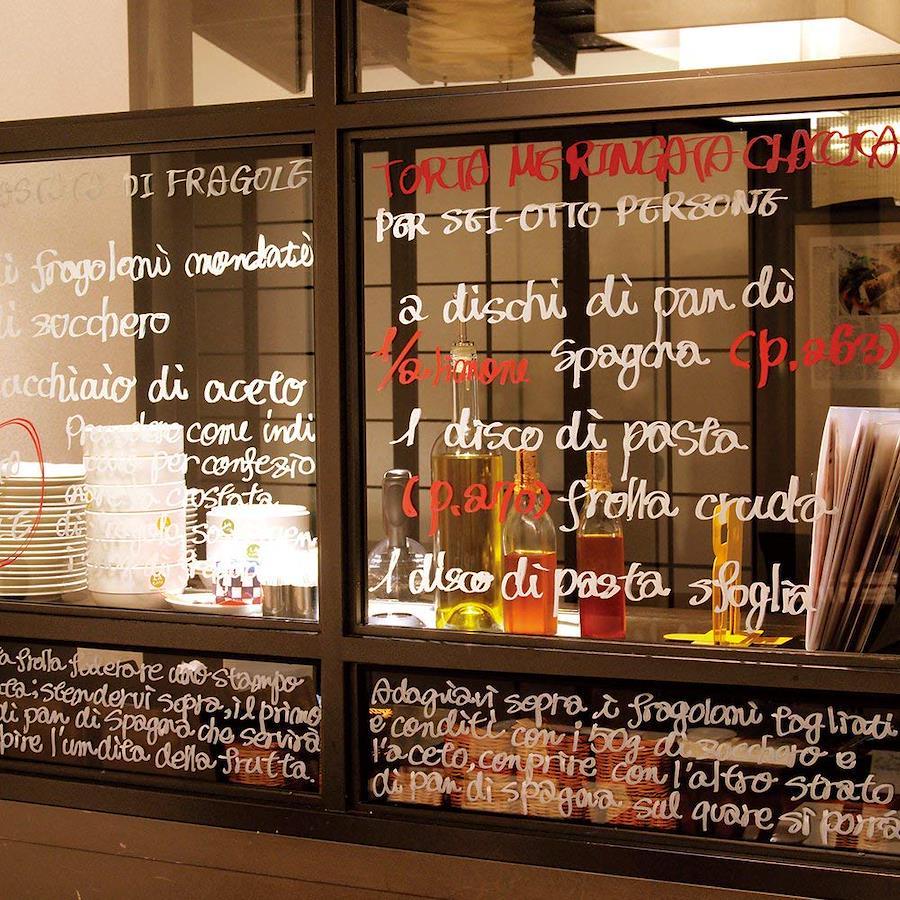 DI FRAGOLE
di fragoloni mondati
di zucchero
acchiaio di aceto
come indi
per confezio
crostata
TORTA MERINGATA CLASSICA
PER SEI-OTTO PERSONE
2 dischi di pan di
1/2 limone spagna (p.263)
1 disco di pasta
(p.270) frolla cruda
1 disco di pasta sfoglia
frolla foderare uno stampo
stendervi sopra, il primo
di pan di spagna che servirà
l'umdita della frutta.
Adagiavi sopra i fragoloni tagliati
e conditi con i 50g di zucchero e
l'aceto, conprire con l'altro strato
di pan di spagna sul quare si porrà